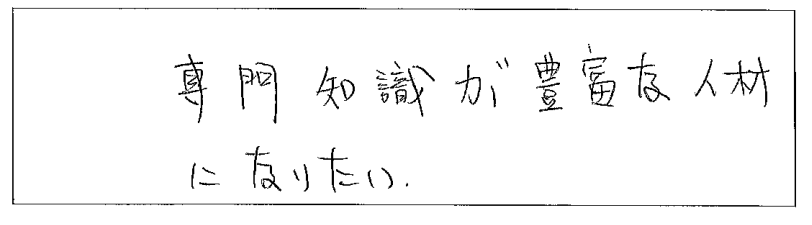 専門知識が豊富な人材
になりたい.